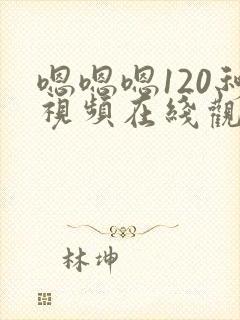 嗯嗯嗯120
視頻在綫觀
林坤